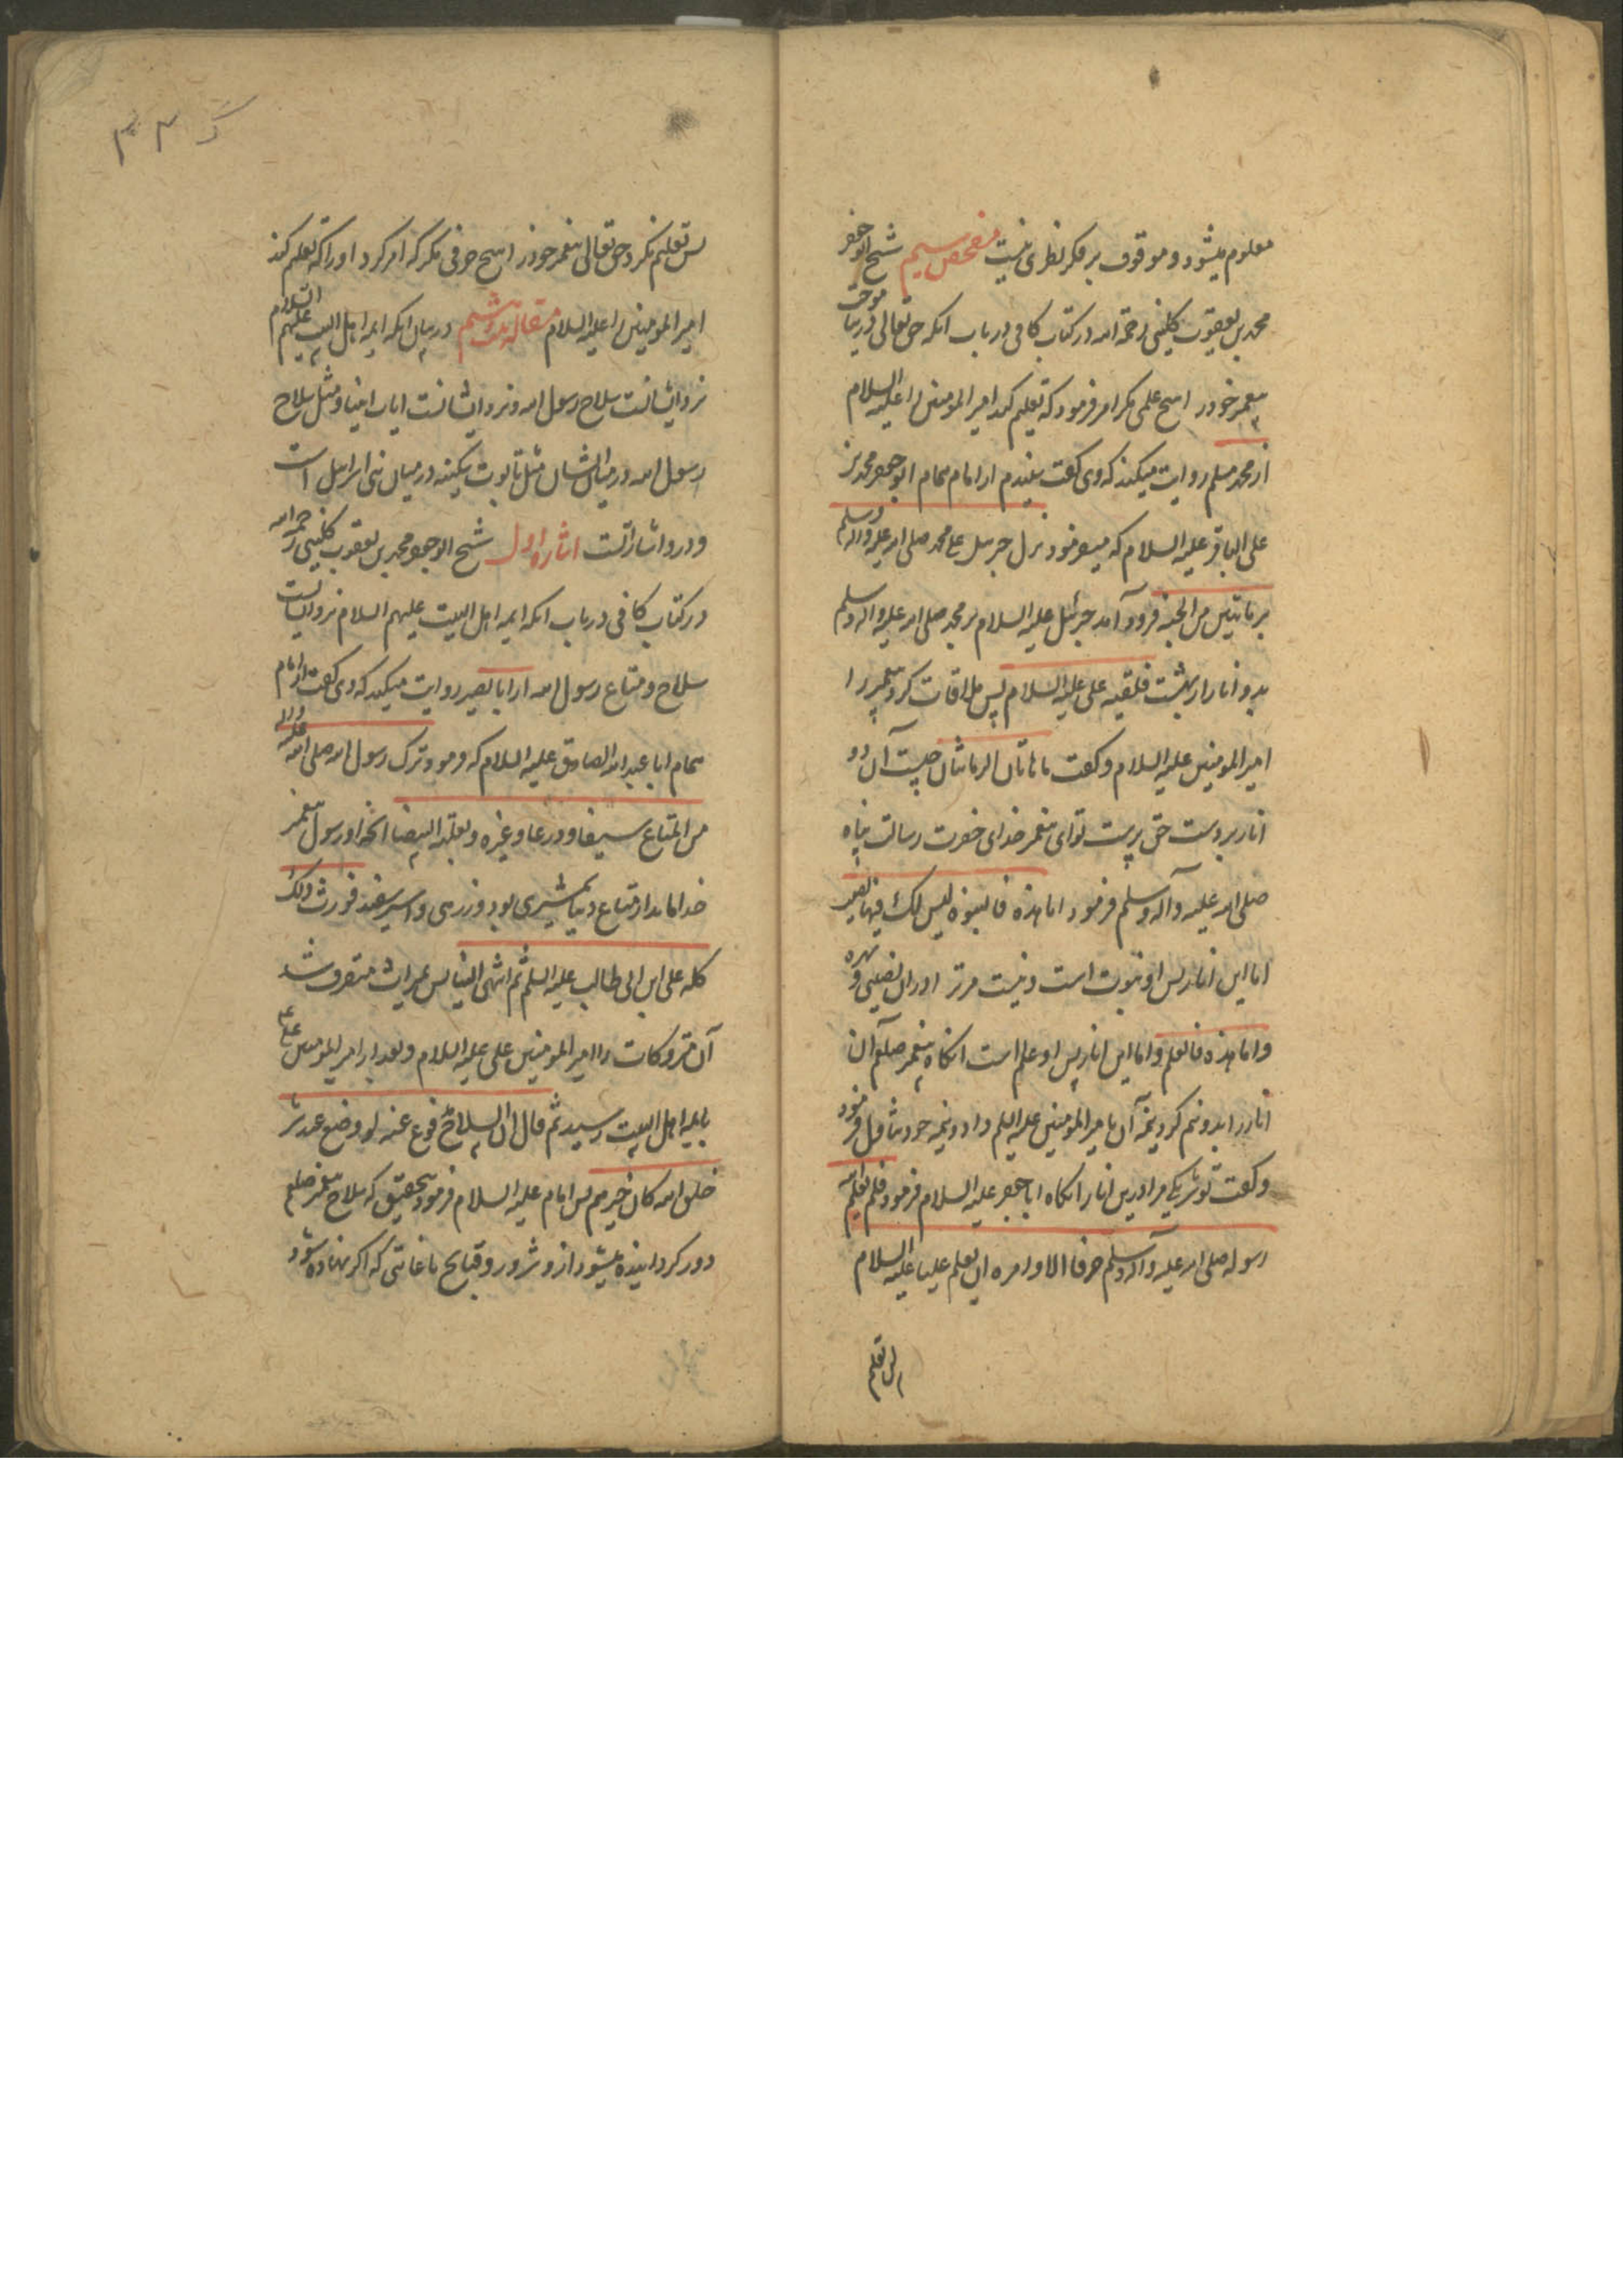 معلوم میشود و موقوف بر فکر نظری نیست مفحص سیم شیخ ابو جعفر
محمد بن یعقوب کلینی رحمة الله در کتاب کافی در باب انکه حق تعالی
پیغمبر خود را هیچ علمی مکر امر فرمود که تعلیم کند امیر المومنین را علیه السلام
از محمد مسلم روایت میکند که وی کفت شنیدم از امام همام ابو جعفر محمد بن
علی الباقر علیه السلام که میفرمود نزل جبرئیل علی محمد صلی الله علیه واله وسلم
برمانتین من الجنه فرود آمد جبرئیل علیه السلام بر محمد صلی الله علیه واله وسلم
بدو انار از بهشت فلقیه علی علیه السلام پس ملاقات کرد پیغمبر را
امیر المومنین علیه السلام و کفت ما هاتان الرمانتان چیست آن دو
انار بر دست حق پرست تو ای پیغمبر خدای حضرت رسالت پناه
صلی الله علیه وآله وسلم فرمود اما هذه فالنبوه لیس لک فیها نصیب
اما این انار پس او نبوت است و نیست مر ترا در ان نصیبی و بهره
و اما هذه فالعلم و اما این انار پس او علم است انکاه پیغمبر صلعم آن
انار را بدو نیم کرد نیمه آن بامیر المومنین علیه السلم داد و نیمه خود تناول فرمود
و کفت تو شریکی مرا درین انار انکاه ابا جعفر علیه السلام فرمود فلم یعلم الله
رسوله صلی الله علیه وآله وسلم حرفا الا و امره ان یعلم علیا علیه السلام
پس تعلیم
پس تعلیم نکرد حق تعالی پیغمبر خود را هیچ حرفی مکر که امر کرد او را که تعلیم کند
امیر المومنین را علیه السلام مقاله بیست و ششم در بیان انکه ایمه اهل البیت علیهم السلام
نزد ایشانست سلاح رسول الله و نزد ایشانست ایات انبیا و مثل سلاح
رسول الله در میان ایشان مثل تابوت سکینه در میان بنی اسرائیل است
و درو اشاراتست اشاره اول شیخ ابو جعفر محمد بن یعقوب کلینی رحمه الله
در کتاب کافی در باب انکه ایمه اهل البیت علیهم السلام نزد ایشانست
سلاح و متاع رسول الله از ابا بصیر روایت میکند که وی کفت از امام
همام ابا عبد الله الصادق علیه السلام که فرمود ترک رسول الله صلی الله علیه واله
من المتاع سیفا و درعا و عنزه و بغلته البیضا انچه از رسول پیغمبر
خدا ماند از متاع دنیا شمشیری بود و زرهی و استر سفید فورث ذلک
کله علی ابن ابی طالب علیه السلم ثم انتهی الینا پس میراث متصرف شد
آن متروکات را امیر المومنین علی علیه السلام و بعد از امیر المومنین علی ع
بایمه اهل البیت رسید ثم قال ان السلاح مدفوع عنه لو وضع عند شر
خلق الله کان خیرهم پس امام علیه السلام فرمود بتحقیق که سلاح پیغمبر صلعم
دور کردانیده میشود ازو شرور و قبایح تا غایتی که اکر نهاده شود